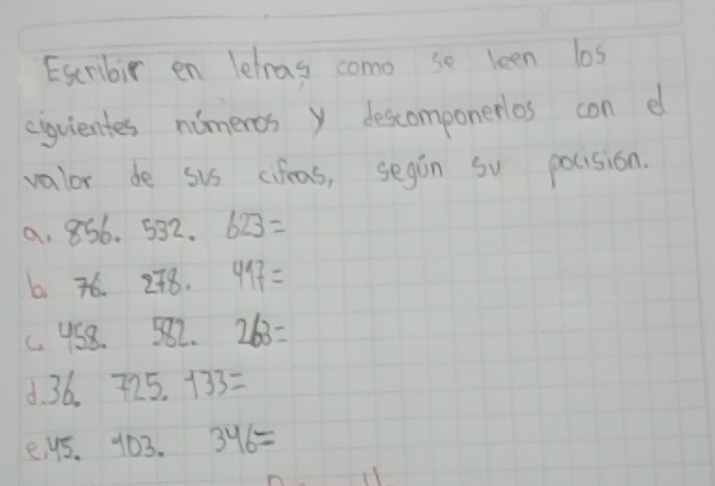 Escribir en letras como se leen los
ciguientes números y descomponerlos con el
valor de sus cifras, según su pocisión.
a. 856. 532. 623=
b 76. 278. 417=
c. 458. 582. 263=
d. 36. 725. 133=
e. 45. 103. 346=